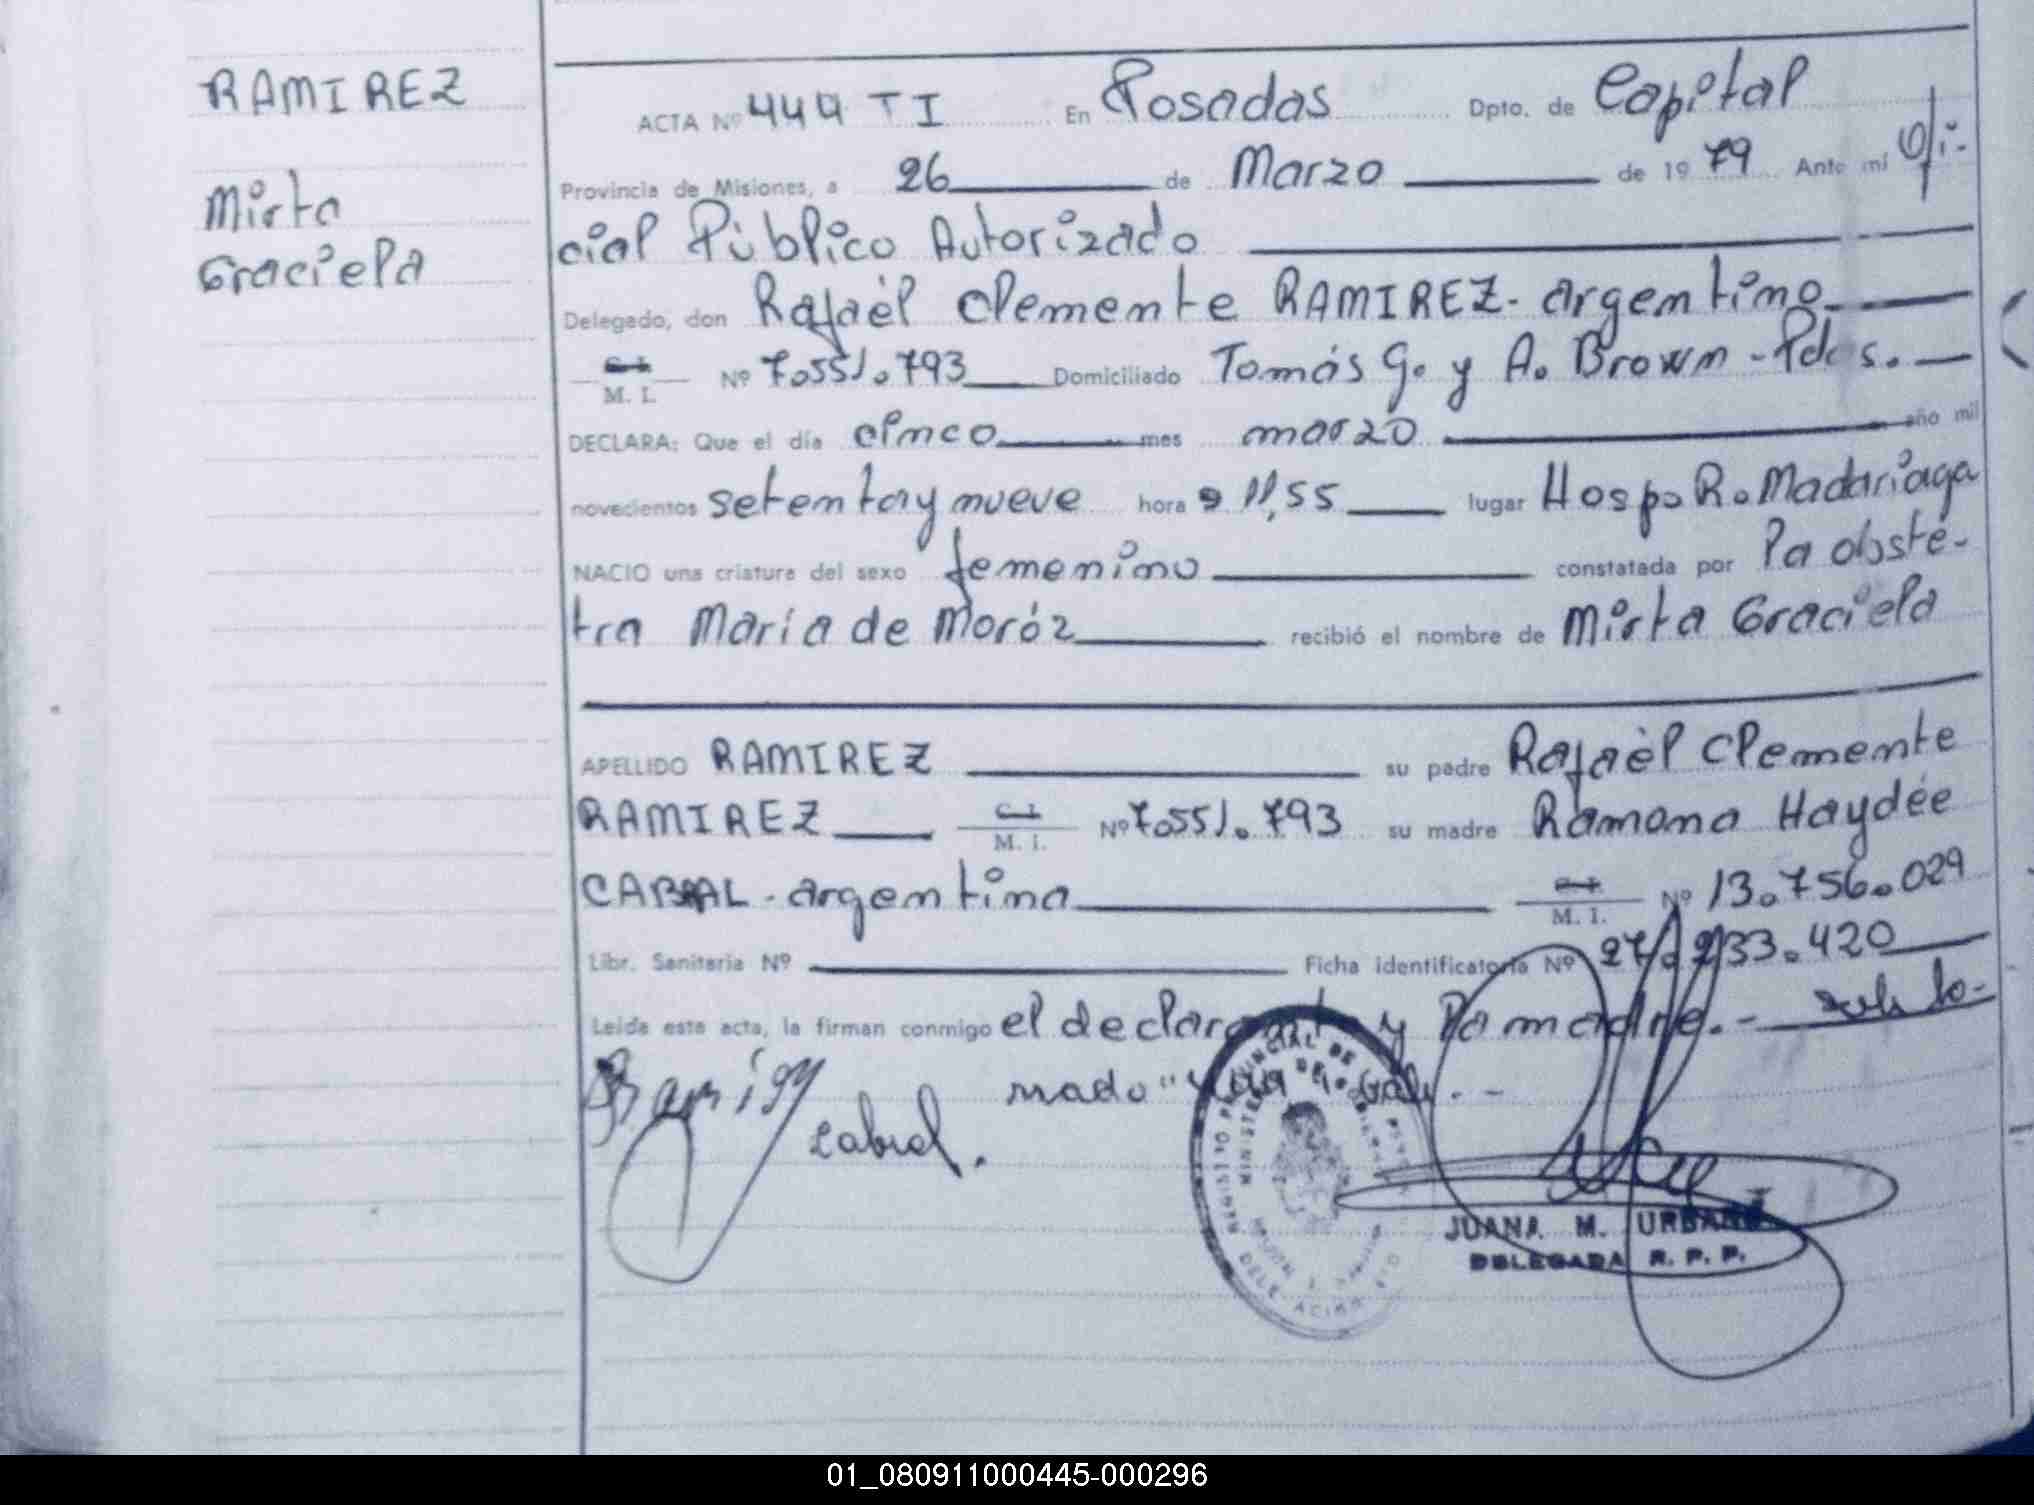 RAMIREZ
Mirta
Graciela
ACTA Nº 444 TI En Posadas Dpto. de Capital
Provincia de Misiones, a 26 de Marzo de 1979 Ante mí Ofi-
cial Público Autorizado
Delegado, don Rafaél Clemente RAMIREZ - argentino
C. I.
M. I. Nº 7.551.793 Domiciliado Tomás G. y A. Brown - Pdas.
DECLARA: Que el día cinco mes marzo año mil
novecientos setenta y nueve hora 11,55 lugar Hosp. R. Madariaga
NACIO una criatura del sexo femenino constatada por la obsté-
tra María de Moróz recibió el nombre de Mirta Graciela
APELLIDO RAMIREZ su padre Rafaél Clemente
RAMIREZ C. I.
M. I. Nº 7.551.793 su madre Ramona Haydée
CABRAL - argentina C. I.
M. I. Nº 13.756.029
Libr. Sanitaria Nº Ficha identificatoria Nº 27.233.420
Leída esta acta, la firman conmigo el declarante y la madre. -
Cabral.
REGISTRO PROVINCIAL DE
JUANA M. URBANO
DELEGADA R. P. P.
01_080911000445-000296